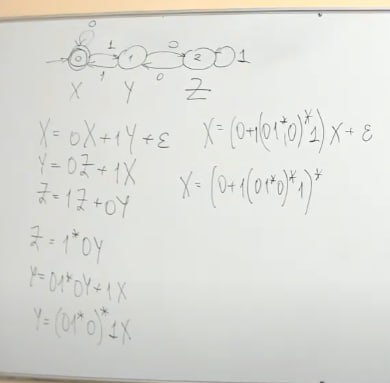 0
1 0
0 1 2 1
1 0
X Y Z
X = 0X + 1Y + ε
Y = 0Z + 1X
Z = 1Z + 0Y
Z = 1*0Y
Y = 01*0Y + 1X
Y = (01*0)*1X
X = (0+1(01*0)*1)X + ε
X = (0+1(01*0)*1)*